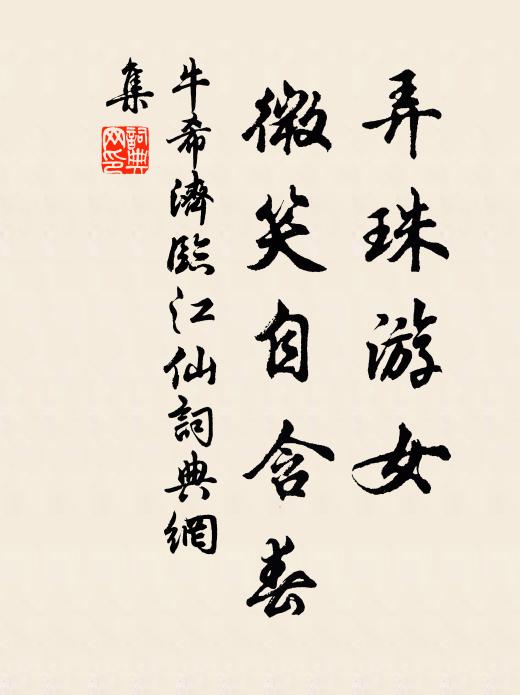 弄珠游女
微笑自含春
牛希濟臨江仙詞典網
集
詞典
网印